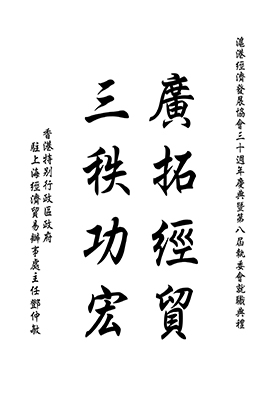 滬港經濟發展協會三十週年慶典暨第八屆執委會就職典禮
廣拓經貿
三秩功宏
香港特別行政區政府
駐上海經濟貿易辦事處主任鄧仲敏